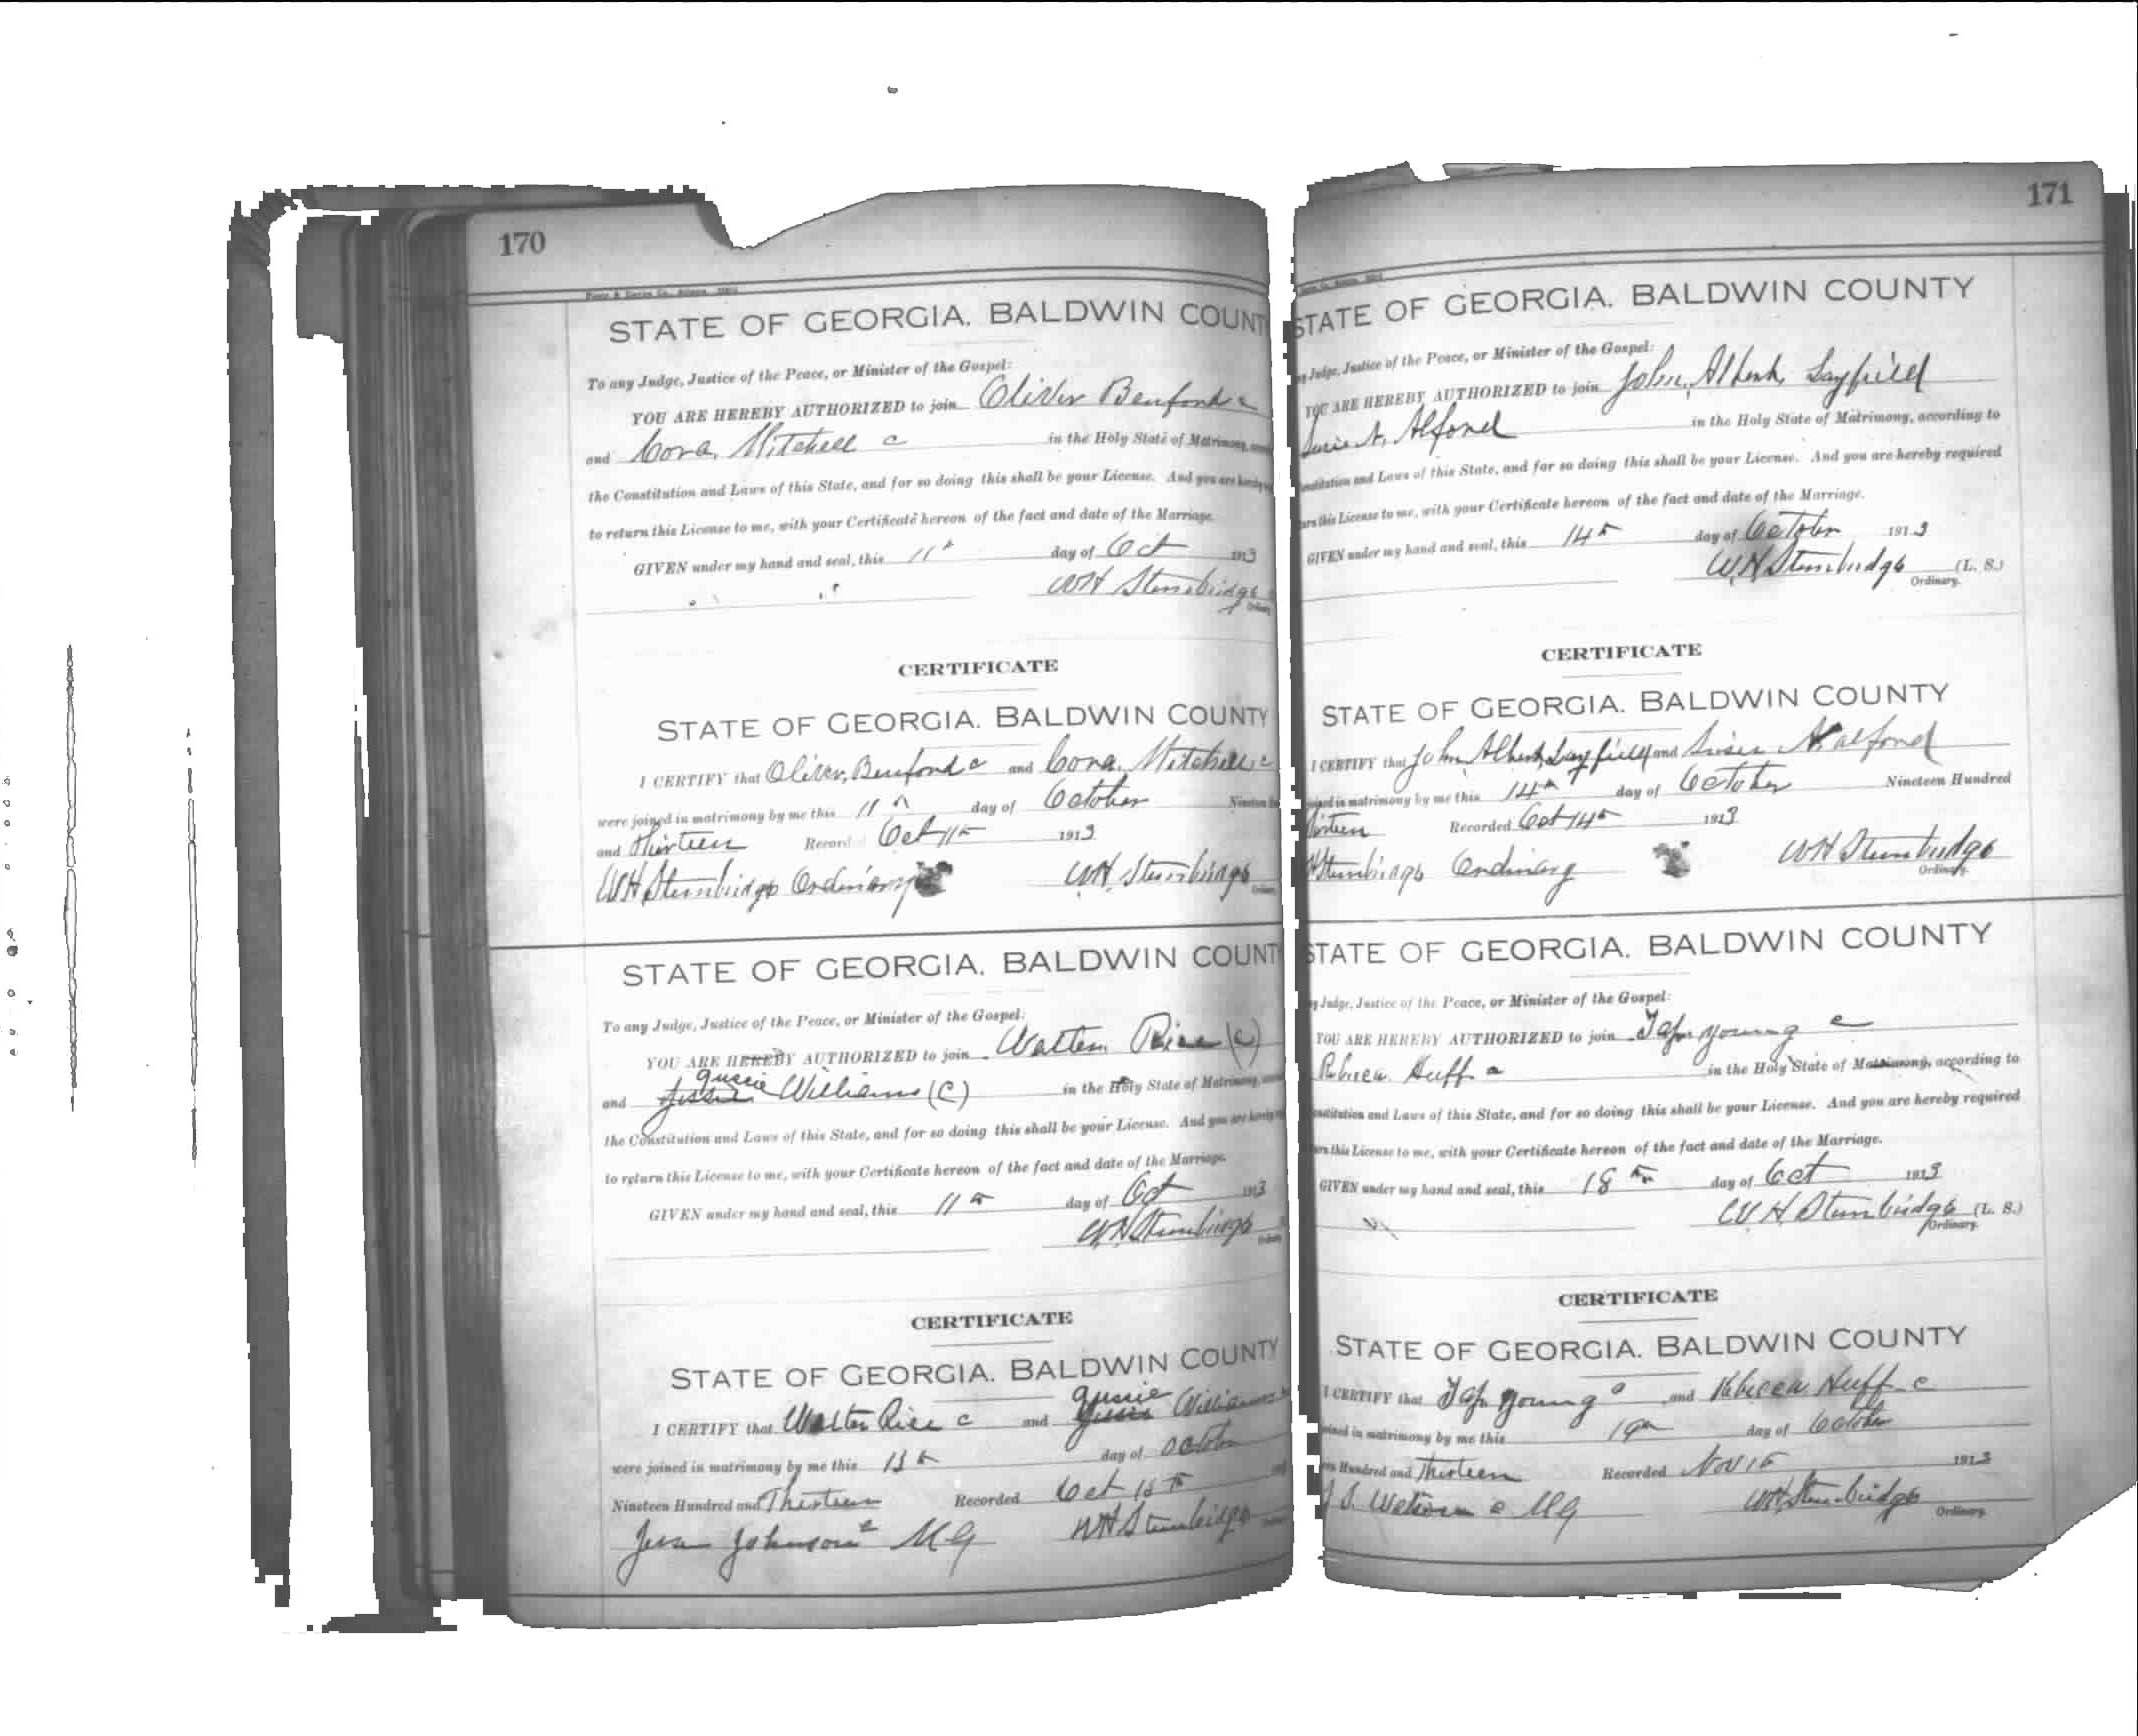 170
STATE OF GEORGIA. BALDWIN COUNT
To any Judge, Justice of the Peace, or Minister of the Gospel:
YOU ARE HEREBY AUTHORIZED to join Oliver Benford c
and Cora Mitchell c in the Holy State of Matrimony,
the Constitution and Laws of this State, and for so doing this shall be your License. And you are hereby
to return this License to me, with your Certificate hereon of the fact and date of the Marriage.
GIVEN under my hand and seal, this 11th day of Oct 1913
WH Stembridge
Ordinary
CERTIFICATE
STATE OF GEORGIA. BALDWIN COUNTY
I CERTIFY that Oliver Benford c and Cora Mitchell c
were joined in matrimony by me this 11th day of October Nineteen
and Thirteen Record Oct 11th 1913
WH Stembridge Ordinary WH Stembridge
STATE OF GEORGIA. BALDWIN COUNT
To any Judge, Justice of the Peace, or Minister of the Gospel:
YOU ARE HEREBY AUTHORIZED to join Walter Rice (C)
Gussie
and Williams (C) in the Holy State of Matrimony,
the Constitution and Laws of this State, and for so doing this shall be your License. And you are hereby
to return this License to me, with your Certificate hereon of the fact and date of the Marriage.
GIVEN under my hand and seal, this 11th day of Oct 1913
WH Stembridge
CERTIFICATE
STATE OF GEORGIA. BALDWIN COUNTY
Gussie
I CERTIFY that Walter Rice c and Williams
were joined in matrimony by me this day of October
Nineteen Hundred and Thirteen Recorded Oct
Johnson c MG WH Stembridge
171
STATE OF GEORGIA. BALDWIN COUNTY
Judge, Justice of the Peace, or Minister of the Gospel:
YOU ARE HEREBY AUTHORIZED to join John Albert Layfield
A. Alford in the Holy State of Matrimony, according to
and Laws of this State, and for so doing this shall be your License. And you are hereby required
this License to me, with your Certificate hereon of the fact and date of the Marriage.
GIVEN under my hand and seal, this 14th day of October 1913
WH Stembridge (L. S.)
Ordinary.
CERTIFICATE
STATE OF GEORGIA. BALDWIN COUNTY
I CERTIFY that John Albert Layfield and A Alford
in matrimony by me this 14th day of October Nineteen Hundred
Recorded Oct 14th 1913
Stembridge Ordinary WH Stembridge
Ordinary.
STATE OF GEORGIA. BALDWIN COUNTY
Judge, Justice of the Peace, or Minister of the Gospel:
YOU ARE HEREBY AUTHORIZED to join Young c
Huff c in the Holy State of Matrimony, according to
and Laws of this State, and for so doing this shall be your License. And you are hereby required
this License to me, with your Certificate hereon of the fact and date of the Marriage.
GIVEN under my hand and seal, this 18th day of Oct 1913
W H Stembridge (L. S.)
Ordinary.
CERTIFICATE
STATE OF GEORGIA. BALDWIN COUNTY
I CERTIFY that Young c and Huff c
in matrimony by me this 19th day of October
Hundred and Thirteen Recorded Nov 1913
c MG WH Stembridge
Ordinary